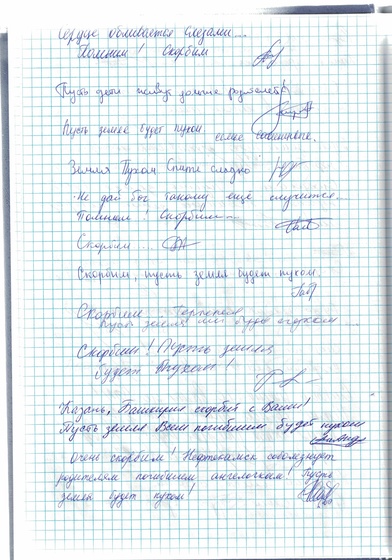 Сердце обливается слезами...
Помним! Скорбим
Пусть дети живут дольше родителей!
Пусть земля будет пухом
Земля Пухом Спите сладко
Не дай бог такому ещё случится...
Помним! Скорбим
Скорбим...
Скорбим, пусть земля будет пухом.
Скорбим
Пусть земля им будет пухом
Скорбим! Пусть земля
будет пухом!
Казань, Башкирия скорбит с Вами!
Пусть земля Всем погибшим будет пухом
Очень скорбим! Нефтекамск соболезнует
родителям погибшим ангелочкам! Пусть
земля будет пухом!